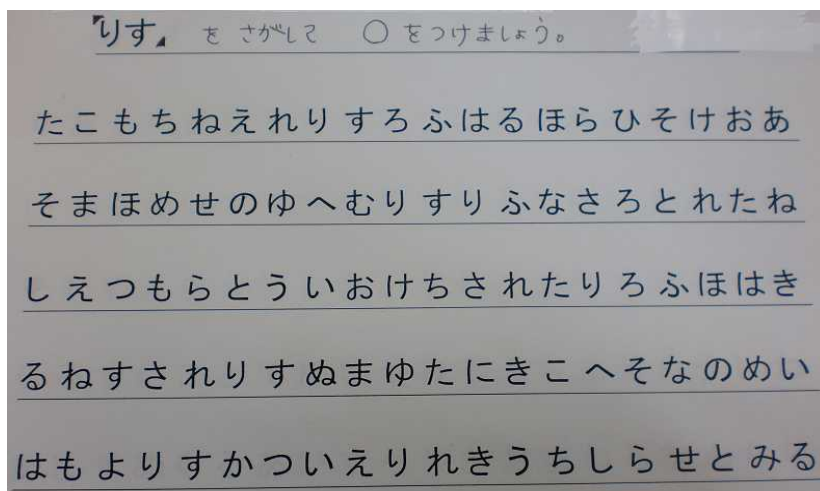 「りす」 を さがして ○ をつけましょう。
たこもちねえれりすろふはるほらひそけおあ
そまほめせのゆへむりすりふなさろとれたね
しえつもらとういおけちされたりろふほはき
るねすされりすぬまゆたにきこへそなのめい
はもよりすかついえりれきうちしらせとみる